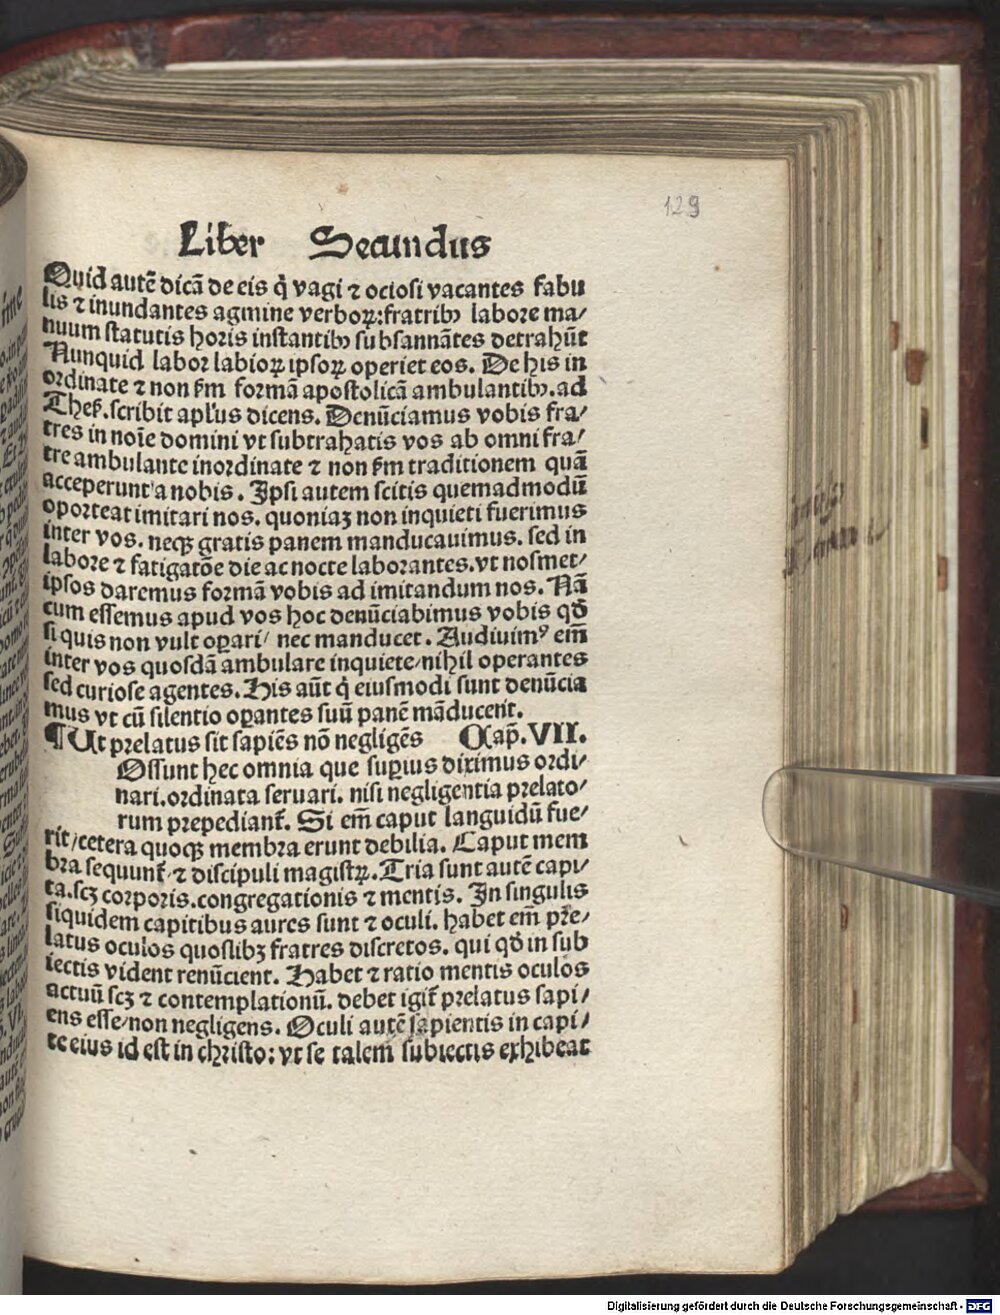 129
Liber Secundus
Quid autē dicā de eis q̄ vagi ⁊ ociosi vacantes fabu
lis ⁊ inundantes agmine verboꝝ:fratribꝰ labore ma/
nuum statutis horis instantibꝰ subsannātes detrahūt
Nunquid labor labioꝝ ipsoꝝ operiet eos. De his in
ordinate ⁊ non ẜm formā apostolicā ambulantibꝰ.ad
Thes̄.scribit apl'us dicens. Denūciamus vobis fra/
tres in noīe domini vt subtrahatis vos ab omni fra/
tre ambulante inordinate ⁊ non ẜm traditionem quā
acceperunt a nobis. Ipsi autem scitis quemadmodū
oporteat imitari nos. quoniaꝫ non inquieti fuerimus
inter vos. neqꝫ gratis panem manducauimus. sed in
labore ⁊ fatigatōe die ac nocte laborantes.vt nosmet/
ipsos daremus formā vobis ad imitandum nos. Nā
cum essemus apud vos hoc denūciabimus vobis qđ
si quis non vult oꝑari/ nec manducet. Audiuimꝰ em̄
inter vos quosdā ambulare inquiete/nihil operantes
sed curiose agentes. His aūt q̄ eiusmodi sunt denūcia
mus vt cū silentio oꝑantes suū panē māducent.
¶Ut prelatus sit sapiēs nō negligēs Cap̄.VII.
Ossunt hec omnia que suꝑius diximus ordi/
nari.ordinata seruari. nisi negligentia prelato/
rum prepediant̄. Si em̄ caput languidū fue/
rit/cetera quoqꝫ membra erunt debilia. Caput mem
bra sequunt̄/⁊ discipuli magistꝝ. Tria sunt autē capi/
ta.scꝫ corporis.congregationis ⁊ mentis. In singulis
siquidem capitibus aures sunt ⁊ oculi. habet em̄ pre/
latus oculos quoslibꝫ fratres discretos. qui qđ in sub
iectis vident renūcient. Habet ⁊ ratio mentis oculos
actuū scꝫ ⁊ contemplationū. debet igit̄ prelatus sapi/
ens esse/non negligens. Oculi autē sapientis in capi/
te eius id est in christo: vt se talem subiectis exhibeat
Digitalisierung gefördert durch die Deutsche Forschungsgemeinschaft - DFG